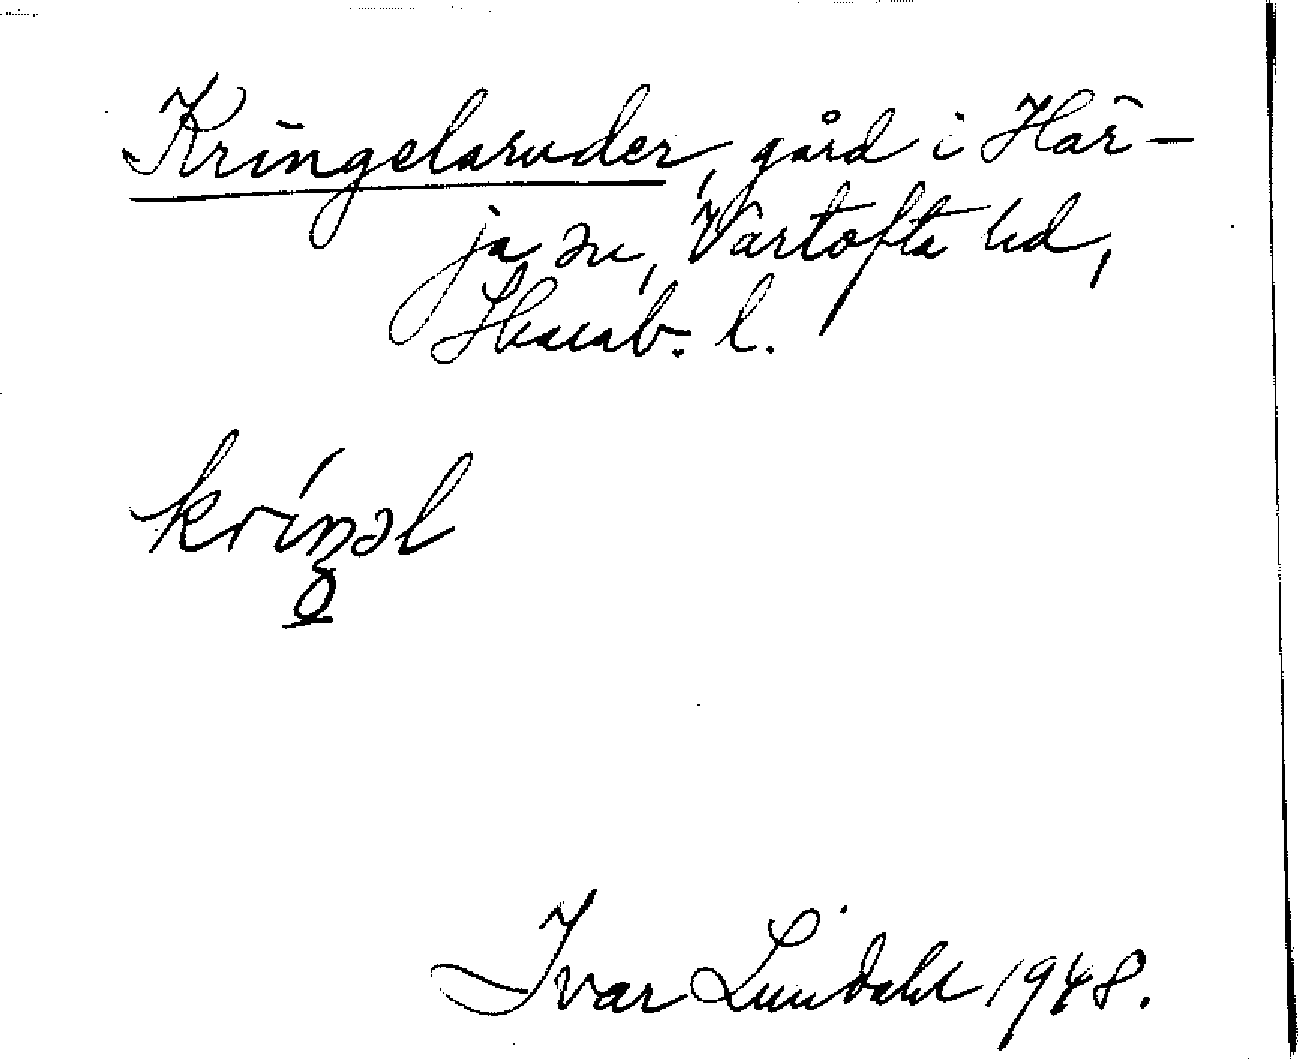 Kringelaruder, gård i Här-
ja sn, Vartofta hd,
Skarab. l.
kríŋəl
Ivar Lundahl 1948.